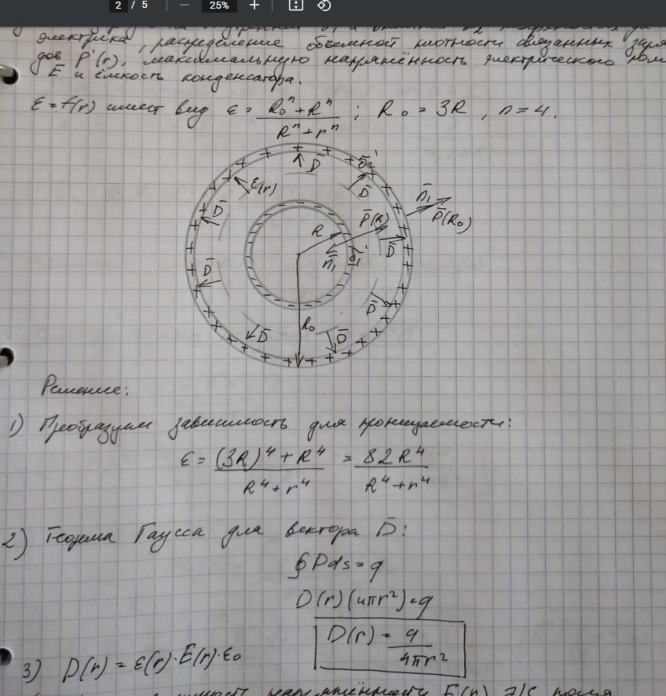 2 / 5 — 25% +
электрика, распределение объемной плотности связанных заря
дов Р'(r), максимальную напряжённость электрического поля
E и ёмкость конденсатора.
ε = f(r) имеет вид ε = (R₀ⁿ + Rⁿ) / (Rⁿ + rⁿ) ; R₀ = 3R , n = 4.
D̄ σ₂'
ε(r) D̄ n̄₁
D̄ P̄(R) P̄(R₀)
R D̄
D̄ n̄₁ σ₁'
D̄
R₀
D̄ D̄
Решение:
1) Преобразуем зависимость для проницаемости:
ε = ((3R)⁴ + R⁴) / (R⁴ + r⁴) = 82R⁴ / (R⁴ + r⁴)
2) Теорема Гаусса для вектора D̄:
∮Dds = q
D(r)(4πr²) = q
D(r) = q / 4πr²
3) D(r) = ε(r)·E(r)·ε₀
напряжённости E(r) эл. поля